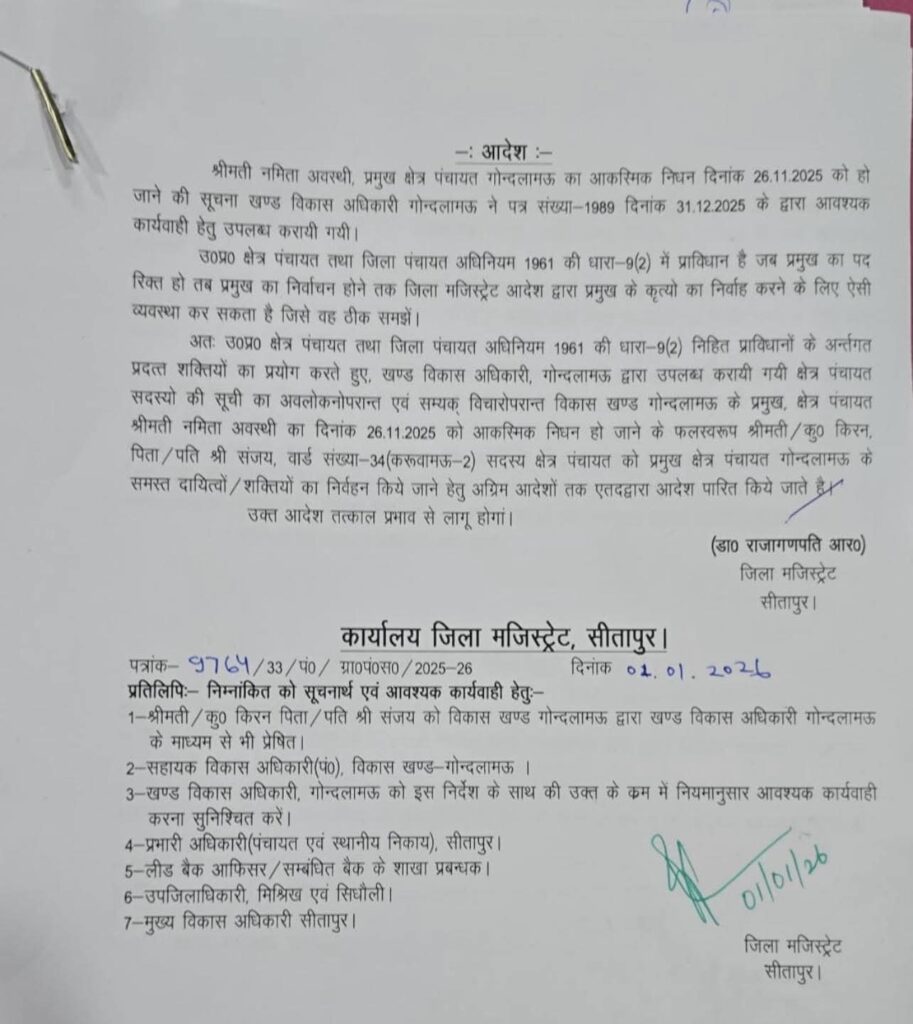 -: आदेश :-
श्रीमती नमिता अवस्थी, प्रमुख क्षेत्र पंचायत गोन्दलामऊ का आकस्मिक निधन दिनांक 26.11.2025 को हो
जाने की सूचना खण्ड विकास अधिकारी गोन्दलामऊ ने पत्र संख्या-1989 दिनांक 31.12.2025 के द्वारा आवश्यक
कार्यवाही हेतु उपलब्ध करायी गयी।
उ0प्र0 क्षेत्र पंचायत तथा जिला पंचायत अधिनियम 1961 की धारा-9(2) में प्राविधान है जब प्रमुख का पद
रिक्त हो तब प्रमुख का निर्वाचन होने तक जिला मजिस्ट्रेट आदेश द्वारा प्रमुख के कृत्यो का निर्वाह करने के लिए ऐसी
व्यवस्था कर सकता है जिसे वह ठीक समझें।
अतः उ0प्र0 क्षेत्र पंचायत तथा जिला पंचायत अधिनियम 1961 की धारा-9(2) निहित प्राविधानों के अर्न्तगत
प्रदत्त शक्तियों का प्रयोग करते हुए, खण्ड विकास अधिकारी, गोन्दलामऊ द्वारा उपलब्ध करायी गयी क्षेत्र पंचायत
सदस्यो की सूची का अवलोकनोपरान्त एवं सम्यक् विचारोपरान्त विकास खण्ड गोन्दलामऊ के प्रमुख, क्षेत्र पंचायत
श्रीमती नमिता अवस्थी का दिनांक 26.11.2025 को आकस्मिक निधन हो जाने के फलस्वरूप श्रीमती/कु0 किरन,
पिता/पति श्री संजय, वार्ड संख्या-34(करूवामऊ-2) सदस्य क्षेत्र पंचायत को प्रमुख क्षेत्र पंचायत गोन्दलामऊ के
समस्त दायित्वों/शक्तियों का निर्वहन किये जाने हेतु अग्रिम आदेशों तक एतदद्वारा आदेश पारित किये जाते है।
उक्त आदेश तत्काल प्रभाव से लागू होगां।
(डा0 राजागणपति आर0)
जिला मजिस्ट्रेट
सीतापुर।
कार्यालय जिला मजिस्ट्रेट, सीतापुर।
पत्रांक- 9764/33/पं0/ ग्रा0पं0स0/2025-26 दिनांक 01.01.2026
प्रतिलिपिः- निम्नांकित को सूचनार्थ एवं आवश्यक कार्यवाही हेतुः-
1-श्रीमती/कु0 किरन पिता/पति श्री संजय को विकास खण्ड गोन्दलामऊ द्वारा खण्ड विकास अधिकारी गोन्दलामऊ
के माध्यम से भी प्रेषित।
2-सहायक विकास अधिकारी(पं0), विकास खण्ड-गोन्दलामऊ ।
3-खण्ड विकास अधिकारी, गोन्दलामऊ को इस निर्देश के साथ की उक्त के क्रम में नियमानुसार आवश्यक कार्यवाही
करना सुनिश्चित करें।
4-प्रभारी अधिकारी(पंचायत एवं स्थानीय निकाय), सीतापुर।
5-लीड बैक आफिसर/सम्बंधित बैक के शाखा प्रबन्धक।
6-उपजिलाधिकारी, मिश्रिख एवं सिधौली।
7-मुख्य विकास अधिकारी सीतापुर।
01/01/26
जिला मजिस्ट्रेट
सीतापुर।